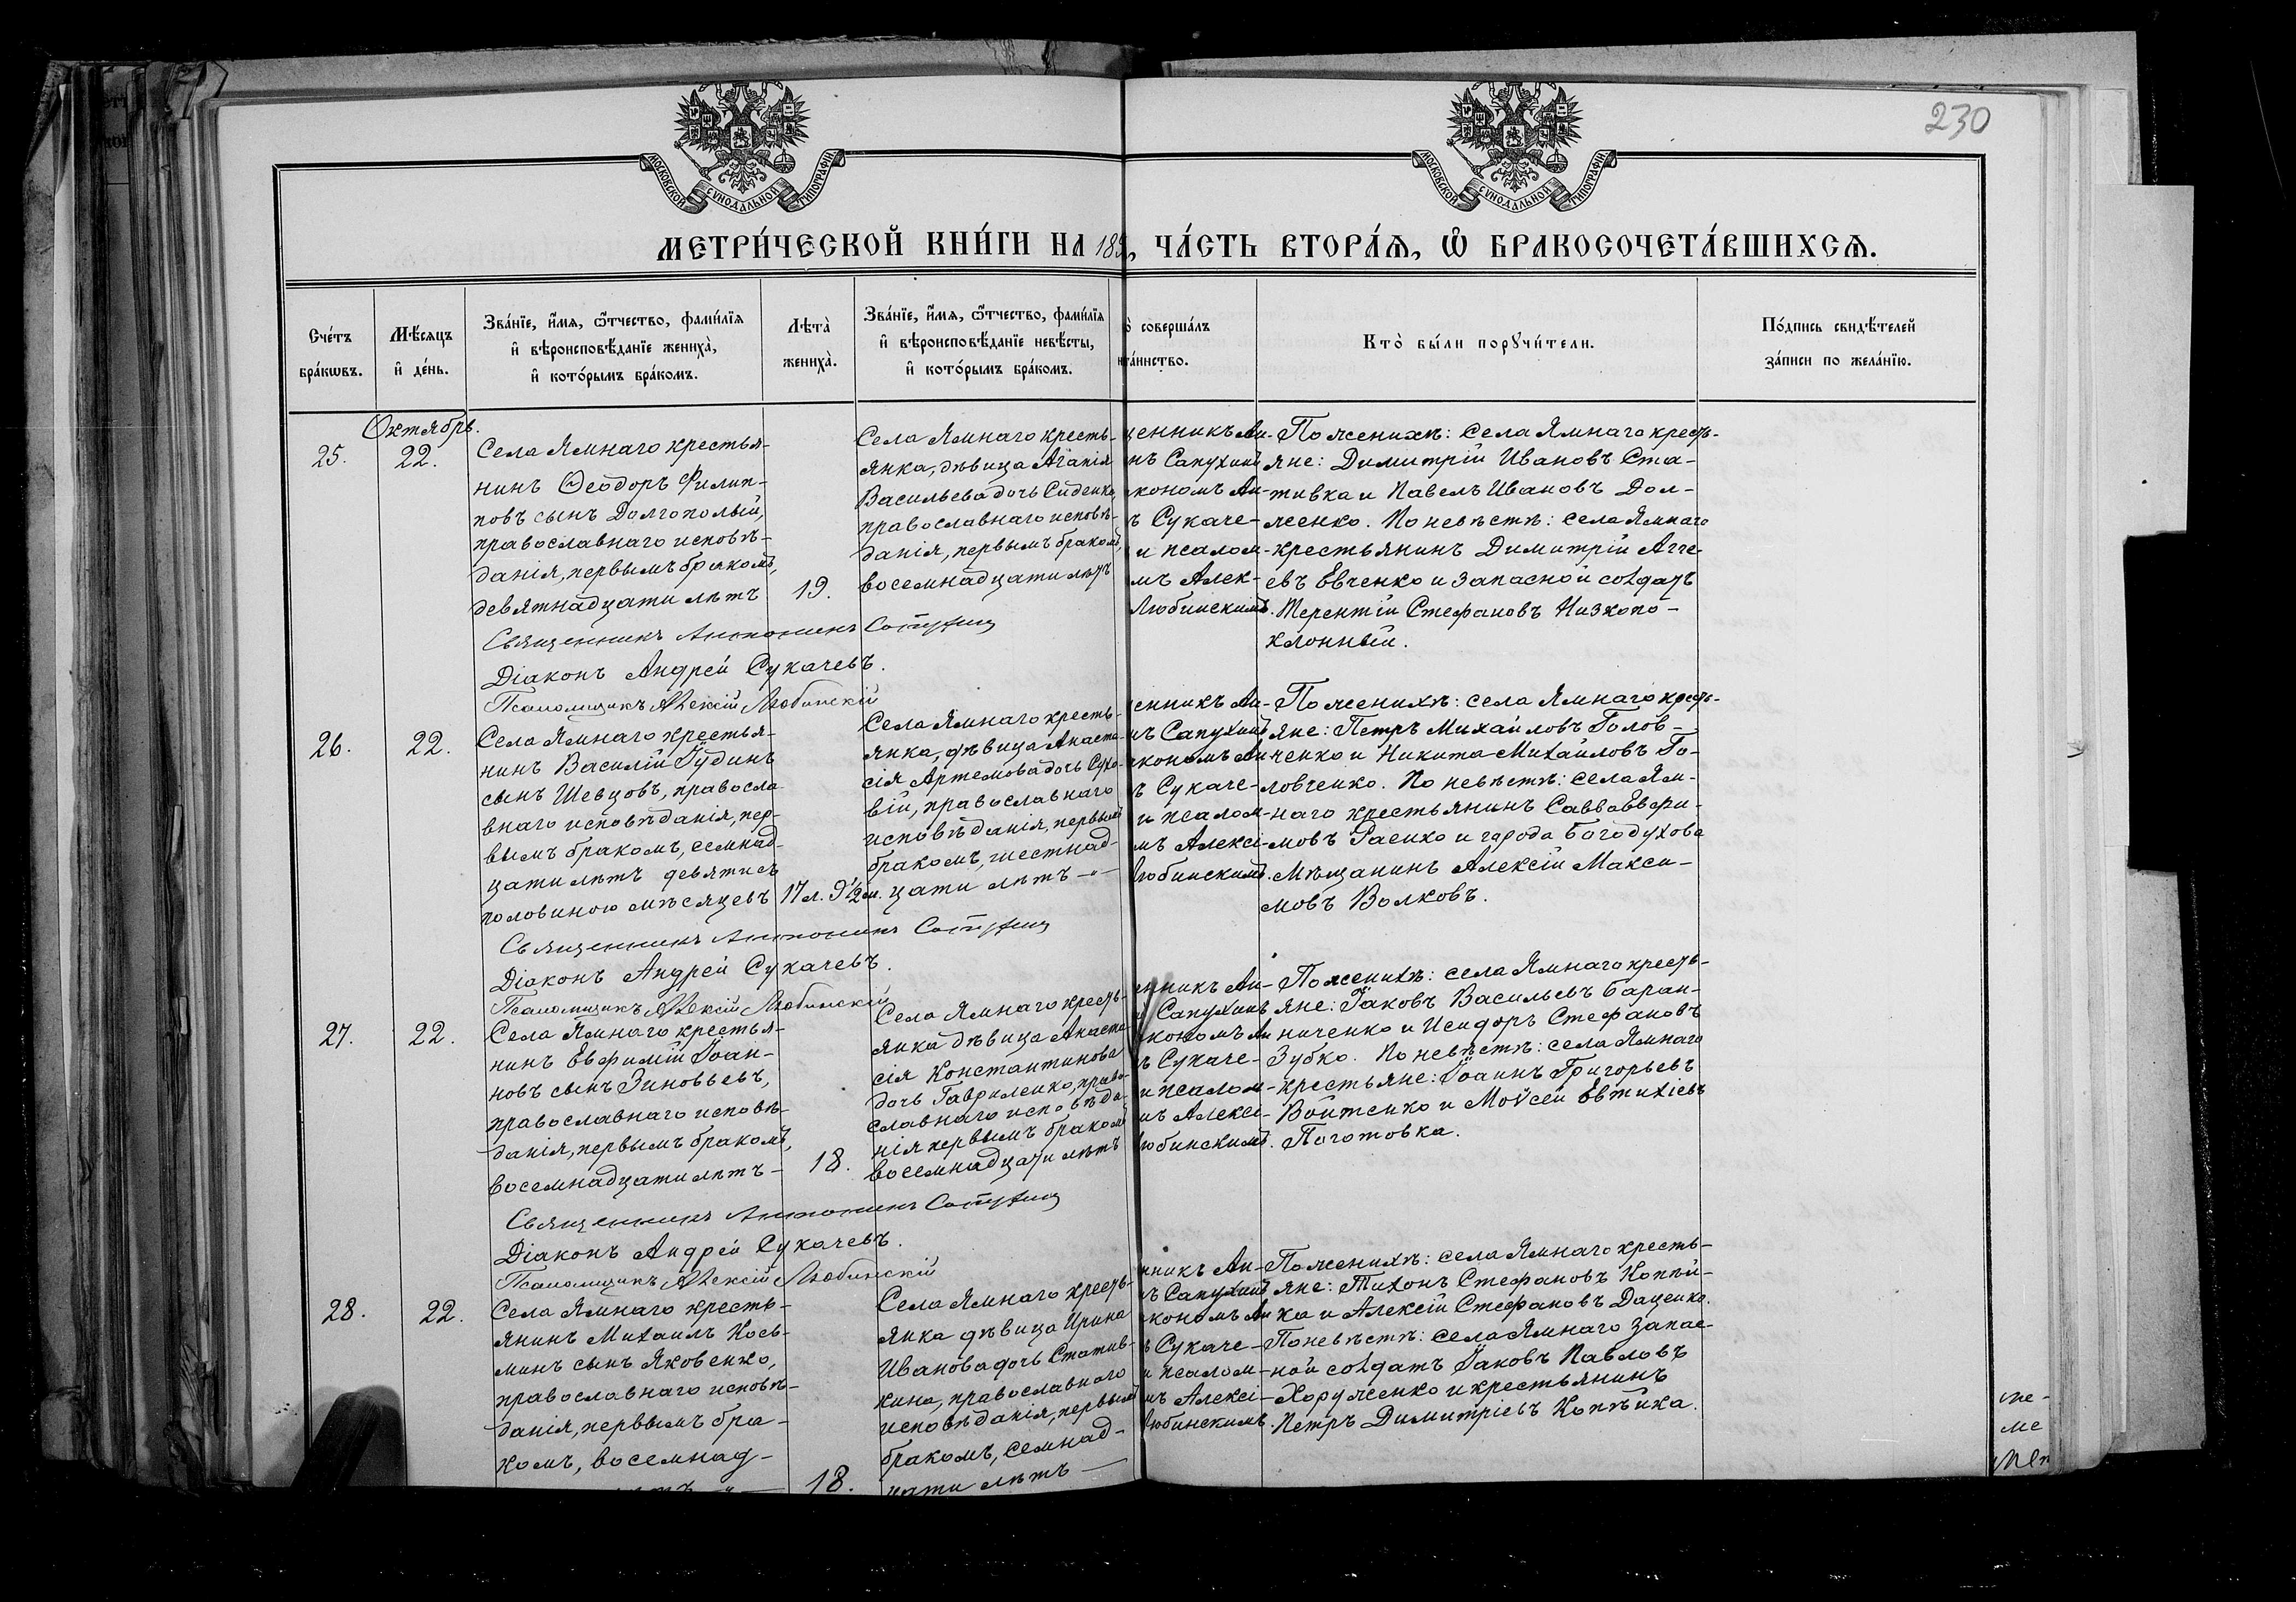 230
МОСКОВСКОЙ СѴНОДАЛЬНОЙ ТИПОГРАФІИ
МОСКОВСКОЙ СѴНОДАЛЬНОЙ ТИПОГРАФІИ
МЕТРИ́ЧЕСКОЙ КНИ́ГИ НА 189, ЧА́СТЬ ВТОРА́Ѧ, Ѡ҆ БРАКОСОЧЕТА́ВШИХСѦ.
Сче́тъ
бра́кѡвъ.
Мѣ́сѧцъ
и҆ де́нь.
Зва́нїе, и҆́мѧ, ѻ҆́тчество, фами́лїѧ
и҆ вѣроисповѣ́данїе жениха̀,
и҆ кото́рымъ бра́комъ.
Лѣта̀
жениха̀.
Зва́нїе, и҆́мѧ, ѻ҆́тчество, фами́лїѧ
и҆ вѣроисповѣ́данїе невѣ́сты,
и҆ кото́рымъ бра́комъ.
о̀ соверша́лъ
та́инство.
Кто̀ бы́ли порꙋчи́тели.
По́дпись свидѣ́телей
за́писи по жела́нїю.
Октябрь.
25.
22.
Села Ямнаго крестья-
нинъ Ѳеодоръ Филип-
повъ сынъ Долгополый,
православнаго исповѣ-
данія, первымъ бракомъ,
девятнадцати лѣтъ
19.
Села Ямнаго кресть-
янка, дѣвица Агапія
Васильева дочь Сиденко,
православнаго исповѣ-
данія, первымъ бракомъ,
восемнадцати лѣтъ
щенникъ Ан-
нъ Сапухинъ
акономъ Ан-
ъ Сукаче-
и псалом-
мъ Алек-
Любинскимъ.
По женихѣ: села Ямнаго кресть-
яне: Димитрій Ивановъ Ста-
тивка и Павелъ Ивановъ Дол-
женко. По невѣстѣ: села Ямнаго
крестьянинъ Димитрій Агге-
евъ Евченко и запасной солдатъ
Терентій Стефановъ Низкопо-
клонный.
Священникъ Антонинъ Сапухин
Діаконъ Андрей Сукачевъ.
Псаломщикъ Алексій Любинскій
26.
22.
Села Ямнаго крестья-
нинъ Василій Іудинъ
сынъ Шевцовъ, правосла
внаго исповѣданія, пер-
вымъ бракомъ, семнад-
цати лѣтъ девятисъ
половиною мѣсяцевъ
17 л. 9½ м.
Села Ямнаго кресть-
янка, дѣвица Анаста-
сія Артемова дочь Сухо-
вій, православнаго
исповѣданія, первымъ
бракомъ, шестнад-
цати лѣтъ
енникъ Ан-
нъ Сапухинъ
акономъ Ан
ъ Сукаче-
и псалом-
мъ Алексі-
Любинскимъ.
По женихѣ: села Ямнаго кресть-
яне: Петръ Михайловъ Голов-
ченко и Никита Михайловъ Го-
ловченко. По невѣстѣ: села Ям-
наго крестьянинъ Савва Евфи-
мовъ Раенко и города Богодухова
Мѣщанинъ Алексій Макси-
мовъ Волковъ.
Священникъ Антонинъ Сапухин
Діаконъ Андрей Сукачевъ.
Псаломщикъ Алексій Любинскій
27.
22.
Села Ямнаго крестья-
нинъ Евфимій Іоан-
новъ сынъ Зиновьевъ,
православнаго исповѣ-
данія, первымъ бракомъ,
восемнадцати лѣтъ-
18.
Села Ямнаго кресть-
янка дѣвица Анаста
сія Константинова
дочь Гавриленко, право-
славнаго исповѣда-
нія первымъ бракомъ
восемнадцати лѣтъ
енникъ Ан-
Сапухинъ
кономъ Ан
ъ Сукаче-
и псалом-
мъ Алексі-
Любинскимъ.
По женихѣ: села Ямнаго кресть-
яне: Іаковъ Васильевъ Баран-
ниченко и Исидоръ Стефановъ
Зубко. По невѣстѣ: села Ямнаго
крестьяне: Іоаннъ Григорьевъ
Войтенко и Моѵсей Евтихіевъ
Поготовка.
Священникъ Антонинъ Сапухин
Діаконъ Андрей Сукачевъ.
Псаломщикъ Алексій Любинскій
28.
22.
Села Ямнаго кресть-
янинъ Михаилъ Кось-
минъ сынъ Яковенко,
православнаго исповѣ-
данія, первымъ бра-
комъ, восемнад-
18.
Села Ямнаго кресть-
янка дѣвица Ирина
Иванова дочь Статив-
кина, православнаго
исповѣданія, первымъ
бракомъ, семнад-
цати лѣтъ
нникъ Ан-
ъ Сапухинъ
кономъ Ан
ъ Сукаче-
и псалом-
мъ Алексі-
Любинскимъ.
По женихѣ: села Ямнаго кресть-
яне: Тихонъ Стефановъ Копѣй-
ка и Алексій Стефановъ Даценко.
По невѣстѣ: села Ямнаго запас-
ной солдатъ Іаковъ Павловъ
Хоруженко и крестьянинъ
Петръ Димитріевъ Копѣйка.